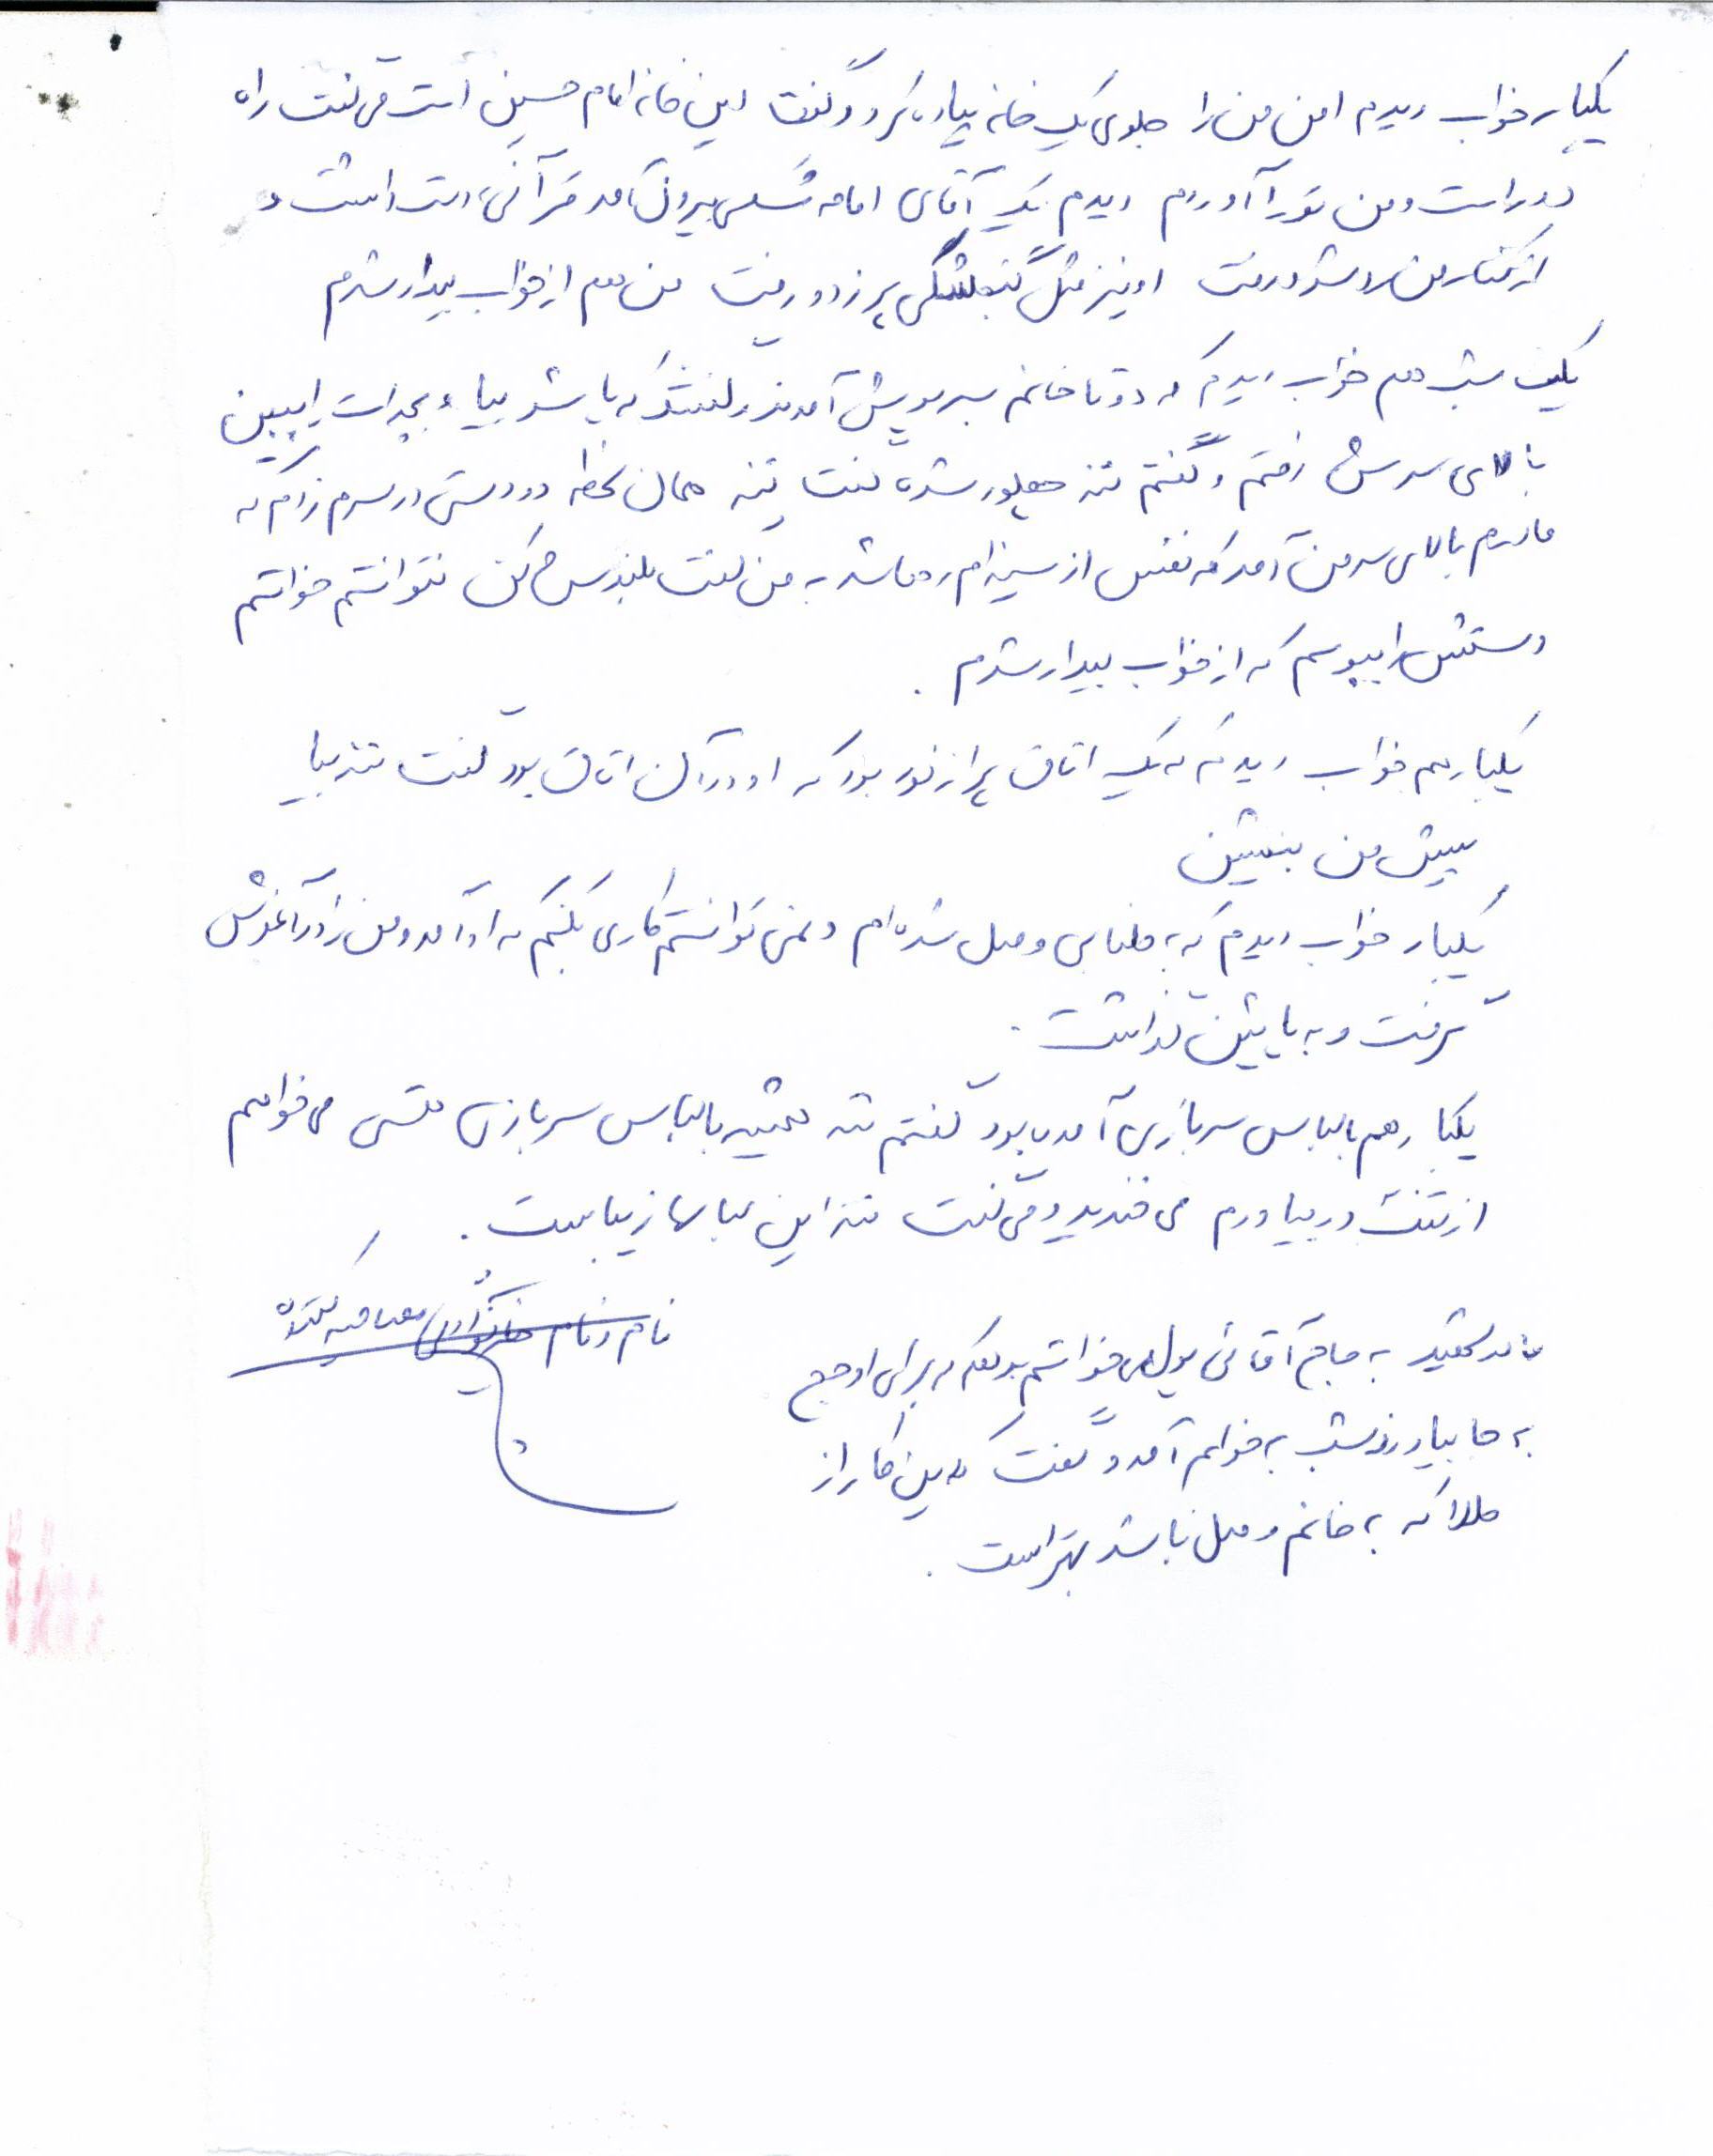 یکبار خواب دیدم امن من را جلوی یک خانه پیاده کرد و گفت این خانه امام حسین است می گفت راه
دور است و من تو را آوردم دیدم یک آقای امامه مشکی بیرون آمد قرآنی دست داشت و
از کنار من رد شد و رفت او نیز مثل گنجشکی پر زد و رفت من هم از خواب بیدار شدم
یک شب هم خواب دیدم که دو تا خانم سبزپوش آمدند و گفتند که پاشو بیا و بچه ات را ببین
بالای سرش رفتم و گفتم ننه چطور شده گفت ننه همان لحظه دو دستی در سرم زدم که
مادرم بالای سر من آمد که نفس از سینه ام رها شد به من گفت بلندش کن نتوانستم خواستم
دستش را ببوسم که از خواب بیدار شدم .
یکبار هم خواب دیدم که یک اتاق پر از نور بود که او در آن اتاق بود گفت ننه بیا
پیش من بنشین
یکبار خواب دیدم که به طنابی وصل شده ام و نمی توانستم کاری بکنم که او آمد و من را در آغوش
گرفت و به پایین گذاشت .
یکبار هم با لباس سربازی آمده بود گفتم ننه همیشه با لباس سربازی هستی می خواهم
از تنت در بیاورم می خندید و می گفت ننه این لباسها زیباست .
نام و نام خانوادگی مصاحبه کننده
به حاج آقائی پول می خواستم بدهم که برای او حج
به جا بیاورند شب به خوابم آمد و گفت که این کار از
طلا که به خانم وصل باشد بهتر است .